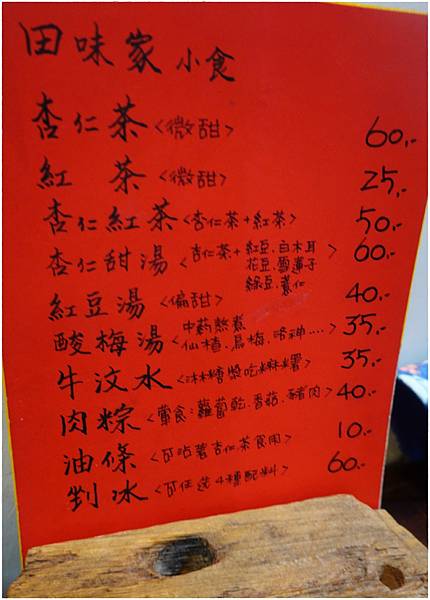 田味家 小食
杏仁茶<微甜> 60,-
紅 茶<微甜> 25,-
杏仁紅茶<杏仁茶+紅茶> 50,-
杏仁甜湯<杏仁茶+紅豆.白木耳 花豆.雪蓮子 綠豆.薏仁> 60,-
紅豆湯<偏甜> 40,-
酸梅湯<中药熬煮 仙楂.烏梅.洛神....> 35,-
牛汶水<沐林糖漿吃麻糬> 35,-
肉粽<葷食:蘿蔔乾.香菇.豬肉> 40,-
油條<可沾著杏仁茶食用> 10,-
剉冰<可任选4種配料> 60,-